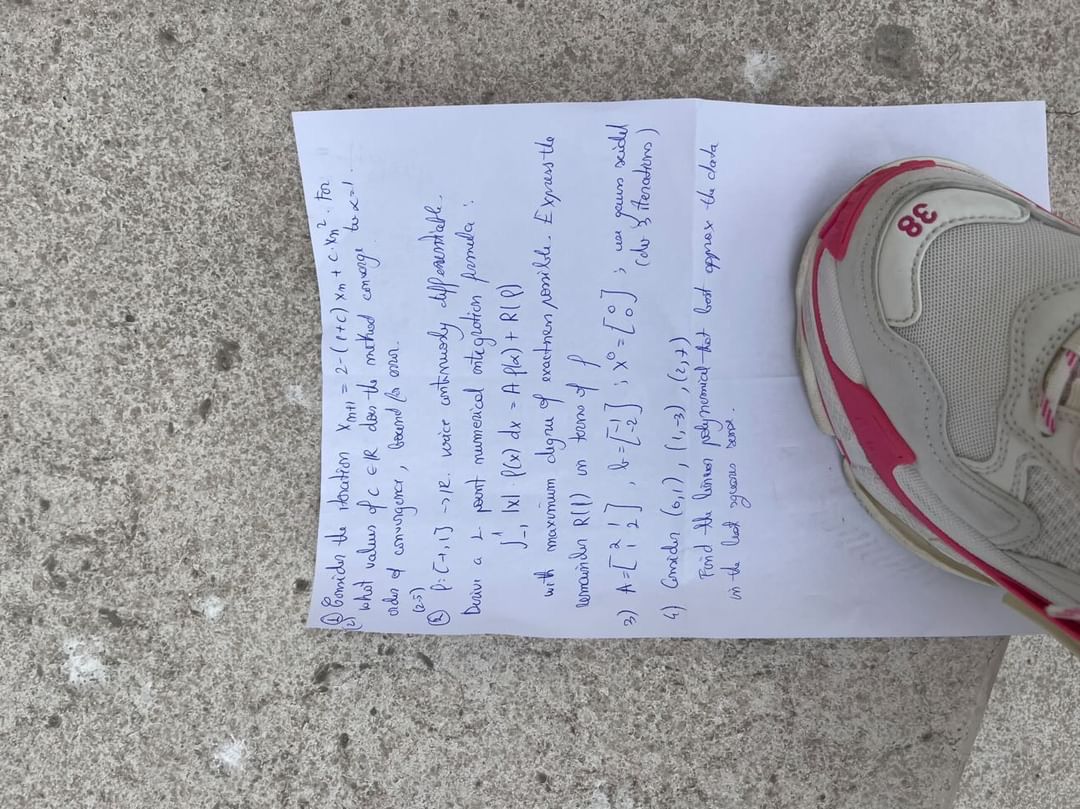 ① Consider the iteration xₙ₊₁ = 2-(1+c) xₙ + c·xₙ². For
(2) what values of c ∈ ℝ does the method converge to α=1.
order of convergence, bound for error.
(2.5)
② f:[-1,1] → ℝ. twice continuosly differentiable.
Derive a 1 point numerical integration formula :
∫₋₁¹ |x| f(x) dx = A f(α) + R(f)
with maximum degree of exactness possible. Express the
remainder R(f) in terms of f
3) A=[2 1; 1 2], b=[-1; -2] ; x⁰=[0; 0] ; use gauss seidel
(do 3 iterations)
4) Consider (0,1), (1,-3), (2,7)
Find the linear polynomial that best approx the data
in the least squares sense.
38